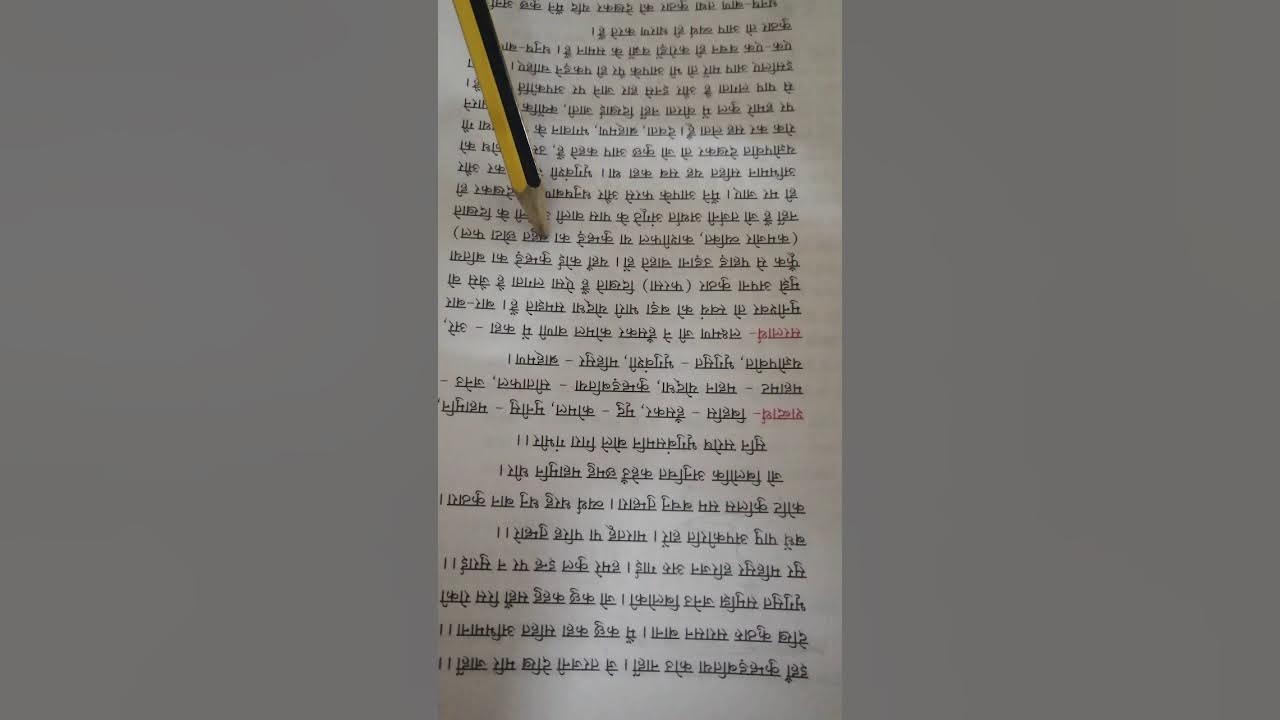 इहाँ कुम्हड़बतिया कोउ नाहीं। जे तरजनी देखि मरि जाहीं।।
देखि कुठारु सरासन बाना। मैं कछु कहा सहित अभिमाना।।
भृगुसुत समुझि जनेउ बिलोकी। जो कछु कहहु सहौं रिस रोकी
सुर महिसुर हरिजन अरु गाई। हमरे कुल इन्ह पर न सुराई।।
बधें पापु अपकीरति हारें। मारतहू पा परिअ तुम्हारे।।
कोटि कुलिस सम बचनु तुम्हारा। ब्यर्थ धरहु धनु बान कुठारा।
जो बिलोकि अनुचित कहेउँ छमहु महामुनि धीर।
सुनि सरोष भृगुबंसमनि बोले गिरा गंभीर।।
शब्दार्थ- बिहसि - हँसकर, मृदु - कोमल, मुनीसु - महामुनि,
महाभट - महान योद्धा, कुम्हड़बतिया - सीताफल, जनेउ -
यज्ञोपवीत, भृगुसुत - भृगुवंशी, महिसुर - ब्राह्मण।
सरलार्थ- लक्ष्मण जी ने हँसकर कोमल वाणी में कहा - अरे,
मुनीश्वर तो स्वयं को बड़ा भारी योद्धा समझते हैं। बार-बार
मुझे अपना कुठार (फरसा) दिखाते हैं ऐसा लगता है जैसे वो
फूँक से पहाड़ उड़ाना चाहते हों। यहाँ कोई कुम्हड़े का बतिया
(कमजोर व्यक्ति, काशीफल या कुम्हड़े का बहुत छोटा फल)
नहीं हैं जो तर्जनी अर्थात अंगूठे के पास वाली के दिखाते
ही मर जाए। मैंने आपके फरसे और धनुषबाण देखकर ही
अभिमान सहित यह सब कहा था। भृगुवंशी कर और
यज्ञोपवीत देखकर तो जो कुछ आप कहते हैं, उसे को
रोक कर सह लेता हूँ। देवता, ब्राह्मण, भगवान के गौ
पर हमारे कुल में वीरता नहीं दिखाई जाती, क्योंकि मारने
से पाप लगता है और इनसे हार जाने पर अपकीर्ति है।
इसलिए आप मारें तो भी आपके पैर ही पकड़ने चाहिए।
एक-एक वचन ही करोड़ों वज्रों के समान है। धनुष-बाण
कुठार तो आप व्यर्थ ही धारण करते हैं।
धनुष-बाण तथा कुठार को देखकर यदि मैंने कुछ